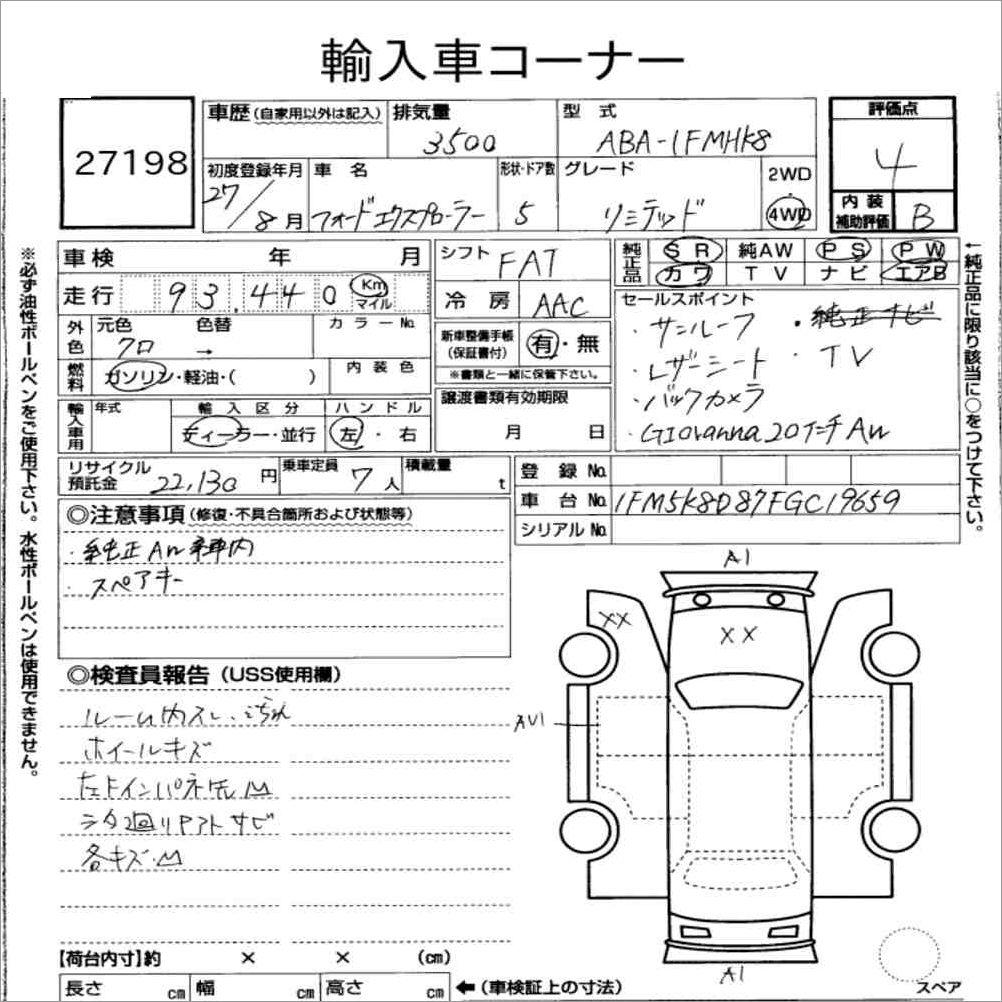 輸入車コーナー
27198
車歴(自家用以外は記入) 排気量 3500 型式 ABA-1FMHK8
評価点 4
初度登録年月 27/8月 車名 フォードエクスプローラー 形状・ドア数 5 グレード リミテッド 2WD 4WD
内装補助評価 B
車検 年 月
走行 93,440 Km マイル
シフト FAT
冷房 AAC
純正品 SR 純AW PS PW
カワ TV ナビ エアB
外色 元色 クロ 色替 → カラーNo.
燃料 ガソリン・軽油・( ) 内装色
新車整備手帳(保証書付) 有・無
※書類と一緒に保管下さい。
セールスポイント
・サンルーフ ・純正ナビ
・レザーシート ・TV
・バックカメラ
・Giovanna20インチAW
輸入車用 年式 輸入区分 ディーラー・並行 ハンドル 左・右
譲渡書類有効期限 月 日
リサイクル預託金 22,130円 乗車定員 7人 積載量 t
登録No.
車台No. 1FM5K8D87FGC19659
シリアルNo.
◎注意事項(修復・不具合箇所および状態等)
・純正AW車内
・スペアキー
◎検査員報告(USS使用欄)
ルーム内スレ、ごちれ
ホイールキズ
シタ廻りサビ
各キズ、凹
A1
XX
XX
AU1
A1
スペア
【荷台内寸】約 × × (cm)
長さ cm 幅 cm 高さ cm ←(車検証上の寸法)
※必ず油性ボールペンをご使用下さい。水性ボールペンは使用できません。
←純正品に限り該当に○をつけて下さい。